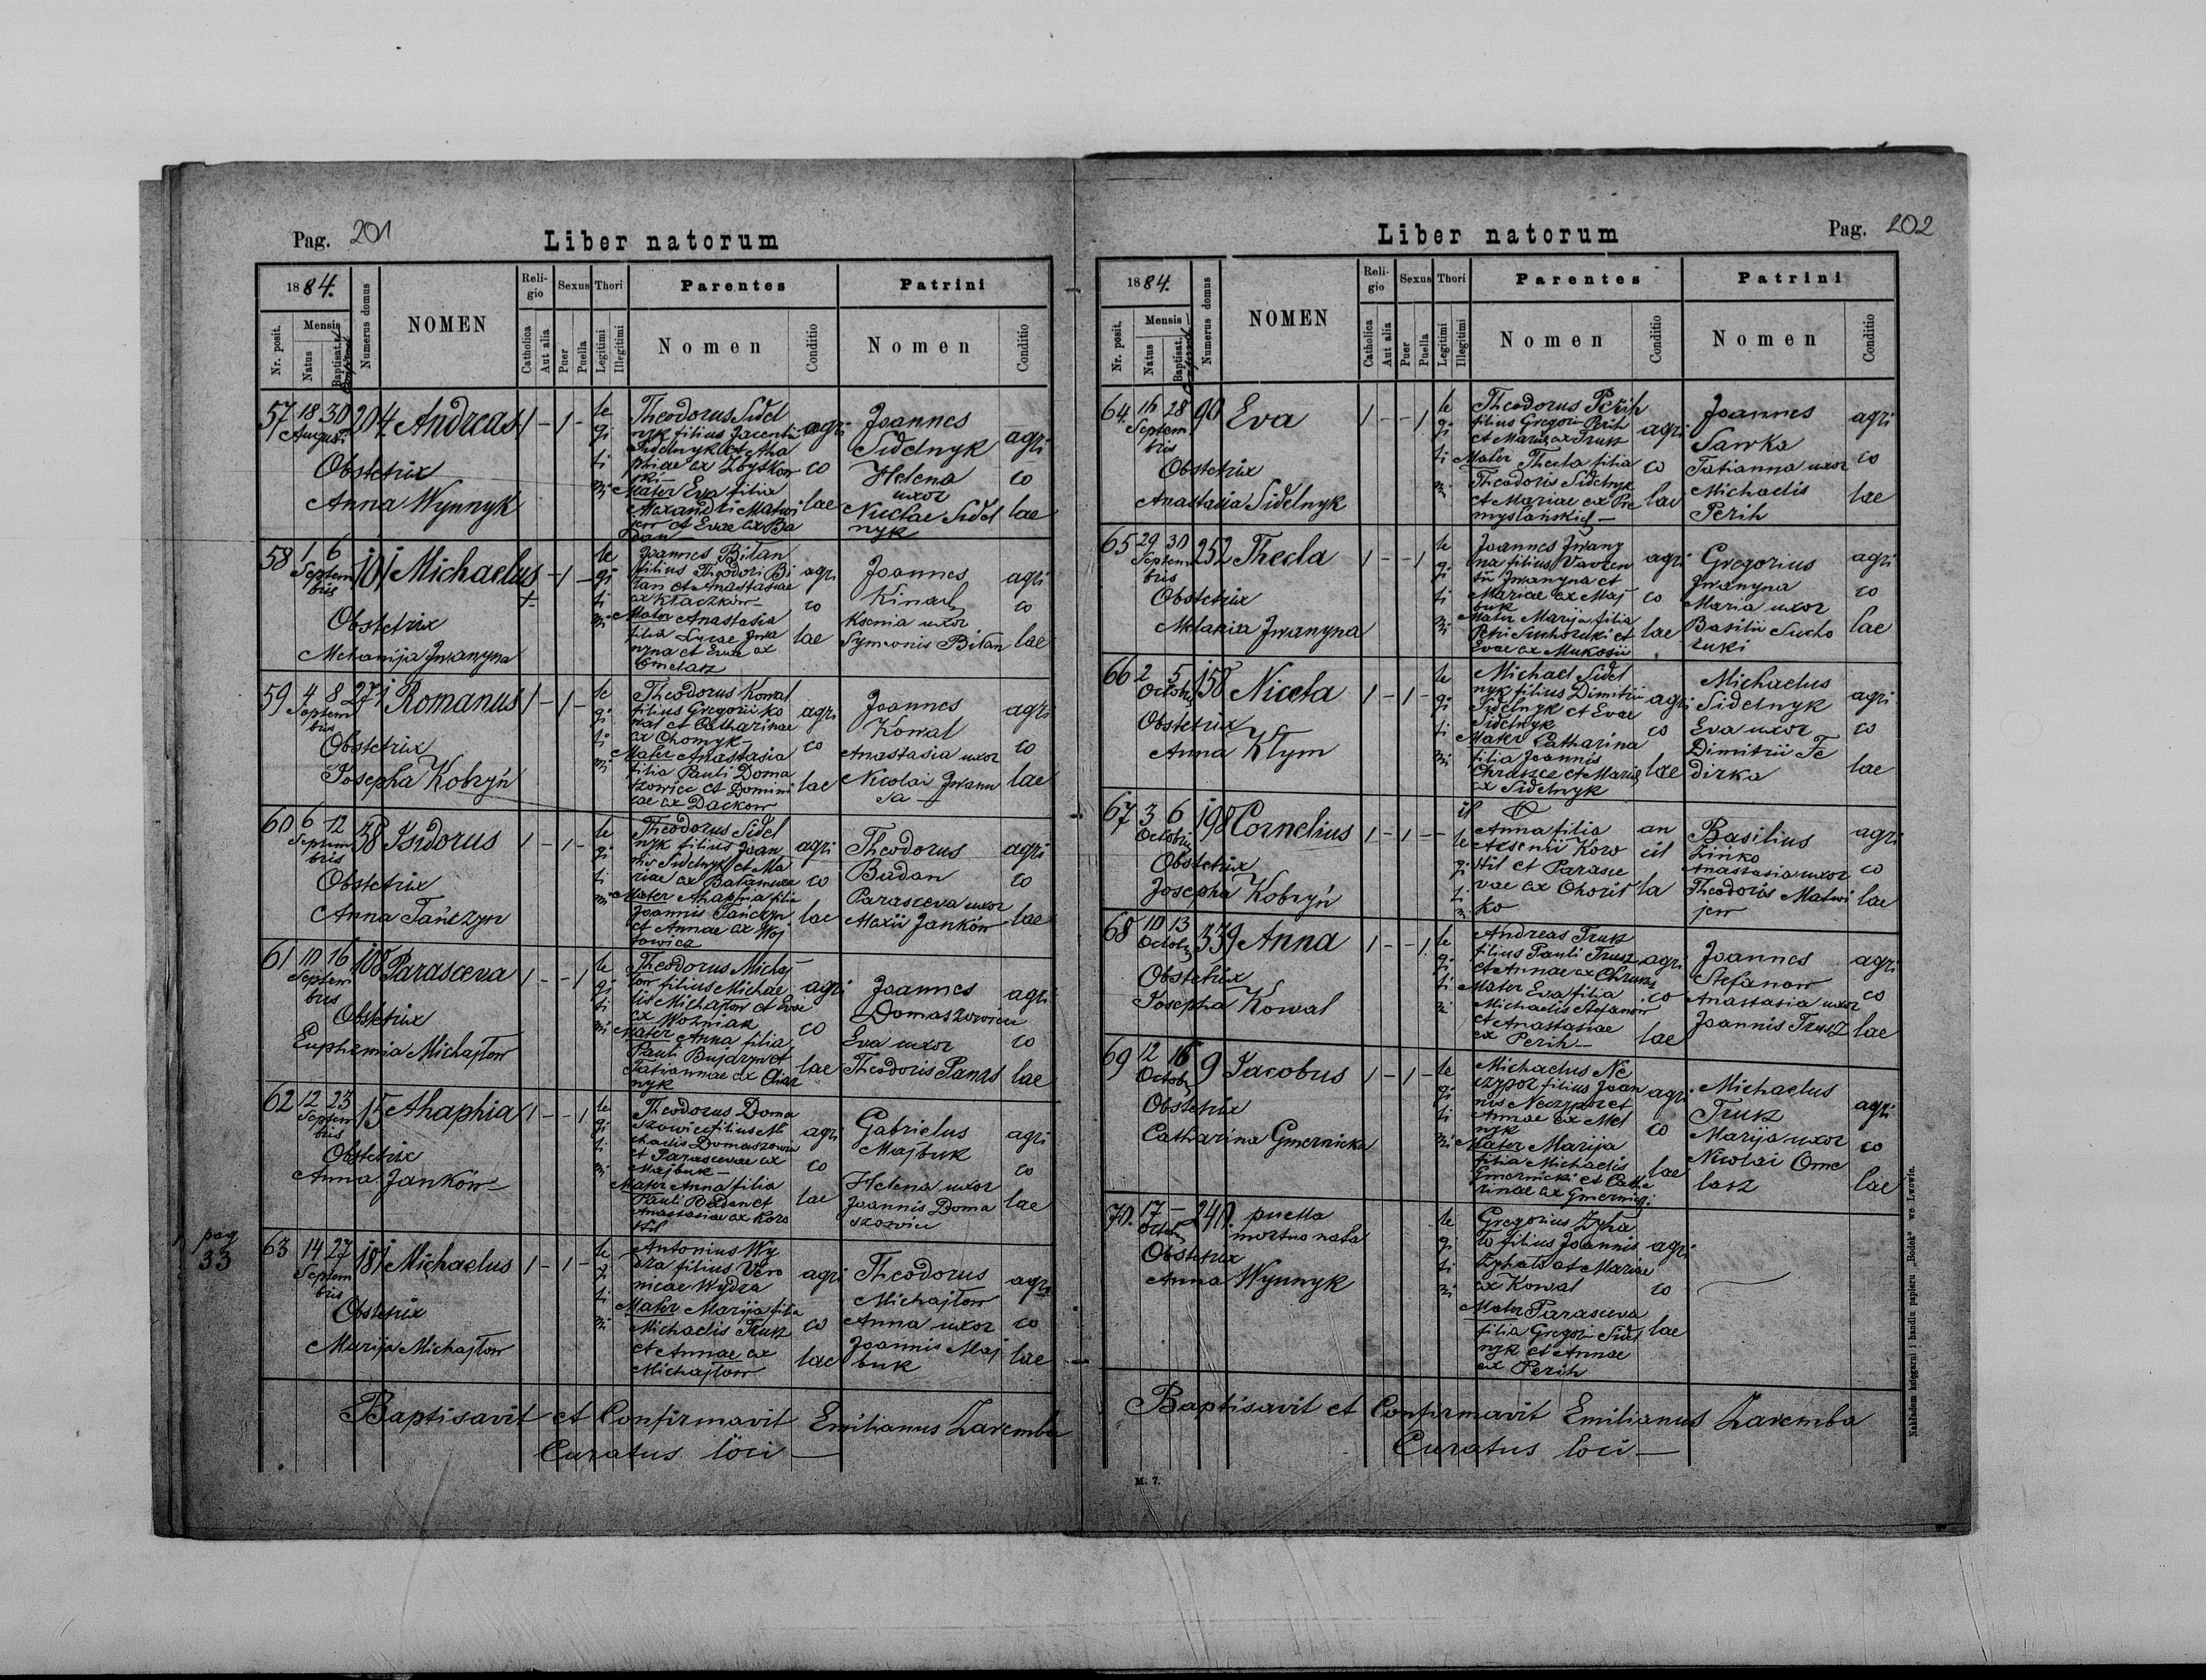 Pag. 201
Liber natorum
1884.
Numerus domus
NOMEN
Religio
Sexus
Thori
Parentes
Patrini
Nr. posit.
Mensis
Natus
Baptisat.
Catholica
Aut alia
Puer
Puella
Legitimi
Illegitimi
Nomen
Conditio
Nomen
Conditio
57 18 30 204. Andreas 1 - 1 -
Augusti
Obstetrix
Anna Wynnyk
legitimi
Theodorus Sidel
nyk filius Jacenti
Sidelnyk et Aha
phiae ex Zbytkow
ski
Mater Eva filia
Alexandri Matwi
jew et Evae ex Ba
dan
agricolae
Joannes
Sidelnyk
Helena
uxor
Nicetae Sidel
nyk
agricolae
58 1 6 101 Michaelus - 1 -
Septembris
Obstetrix
Melanija Jwanyna
legitimi
Joannes Bitan
filius Theodori Bi
tan et Anastasiae
ex Kłaczków
Mater Anastasia
filia Lucae Jwa
nyna et Evae ex
Omelasz
agricolae
Joannes
Kinach
Ksenia uxor
Symeonis Bitan
agricolae
59 4 8 271 Romanus 1 - 1 -
Septembris
Obstetrix
Josepha Kobryń
legitimi
Theodorus Kowal
filius Gregorii Ko
wal et Catharinae
ex Chomyk
Mater Anastasia
filia Pauli Doma
szowicz et Domini
cae ex Dackow
agricolae
Joannes
Kowal
Anastasia uxor
Nicolai Jwanu
sa
agricolae
60 6 12 38 Isidorus 1 - 1 -
Septembris
Obstetrix
Anna Tańczyn
legitimi
Theodorus Sidel
nyk filius Joan
nis Sidelnyk et Ma
riae ex Balamuca
Mater Ahaphia filia
Joannis Tańczyn
et Annae ex Woj
towicz
agricolae
Theodorus
Badan
Parasceva uxor
Alexii Janków
agricolae
61 10 16 108 Parasceva 1 - - 1
Septembris
Obstetrix
Euphemia Michajłow
legitimi
Theodorus Michaj
łow filius Michae
lis Michajłow et Evae
ex Woźniak
Mater Anna filia
Pauli Bujdzyn et
Tatiannae ex Oliar
nyk
agricolae
Joannes
Domaszowicz
Eva uxor
Theodoris Panas
agricolae
62 12 23 15 Ahaphia 1 - - 1
Septembris
Obstetrix
Anna Janków
legitimi
Theodorus Doma
szowicz filius Mi
chaelis Domaszowicz
et Parascevae ex
Majbuk
Mater Anna filia
Pauli Badan et
Anastasiae ex Koro
stil
agricolae
Gabrielus
Majbuk
Helena uxor
Joannis Doma
szowicz
agricolae
pag
33
63 14 27 181 Michaelus 1 - 1 -
Septembris
Obstetrix
Marija Michajłow
legitimi
Antonius Wy
dra filius Vero
nicae Wydra
Mater Marija filia
Michaelis Trusz
et Annae ex
Michajłow
agricolae
Theodorus
Michajłow
Anna uxor
Joannis Maj
buk
agricolae
Baptisavit et Confirmavit Emilianus Zaremba
Curatus loci
Liber natorum
Pag. 202
1884.
Numerus domus
NOMEN
Religio
Sexus
Thori
Parentes
Patrini
Nr. posit.
Mensis
Natus
Baptisat.
Catholica
Aut alia
Puer
Puella
Legitimi
Illegitimi
Nomen
Conditio
Nomen
Conditio
64. 16 28 90 Eva 1 - - 1
Septembris
Obstetrix
Anastasia Sidelnyk
legitimi
Theodorus Perih
filius Gregorii Perih
et Mariae ex Trusz
Mater Thecla filia
Theodoris Sidelnyk
et Mariae ex Pre
myslańskich
agricolae
Joannes
Sawka
Tatianna uxor
Michaelis
Perih
agricolae
65 29 30 252 Thecla 1 - - 1
Septembris
Obstetrix
Melania Jwanyna
legitimi
Joannes Jwany
na filius Vavren
tii Jwanyna et
Mariae ex Maj
buk
Mater Marija filia
Petri Suchorzki et
Evae ex Mukosii
agricolae
Gregorius
Jwanyna
Maria uxor
Basilii Sucho
rzki
agricolae
66 2 5 158 Niceta 1 - 1 -
Octobris
Obstetrix
Anna Kłym
legitimi
Michael Sidel
nyk filius Dimitrii
Sidelnyk et Evae
Sidelnyk
Mater Catharina
filia Joannis
Chraszcz et Mariae
ex Sidelnyk
agricolae
Michaelus
Sidelnyk
Eva uxor
Dimitrii Fe
dirka
agricolae
67 3 6 198 Cornelius 1 - 1 -
Octobris
Obstetrix
Josepha Kobryń
illegitimi
Anna filia
Arsenii Koro
stil et Parasce
vae ex Choris
ko
ancilla
Basilius
Zińko
Anastasia uxor
Theodoris Matwi
jew
agricolae
68 10 13 339 Anna 1 - - 1
Octobris
Obstetrix
Josepha Kowal
legitimi
Andreas Trusz
filius Pauli Trusz
et Annae ex Chrunz
Mater Eva filia
Michaelis Stefanow
et Anastasiae
ex Perih
agricolae
Joannes
Stefanow
Anastasia uxor
Joannis Trusz
agricolae
69 12 16 9 Jacobus 1 - 1 -
Octobris
Obstetrix
Catharina Gmernicka
legitimi
Michaelus Ne
czypor filius Joan
nis Neczypor et
Annae ex Mel
nyk
Mater Marija
filia Michaelis
Gmernicki et Catha
rinae ex Gmernicki
agricolae
Michaelus
Trusz
Marija uxor
Nicolai Ome
lasz
agricolae
70. 17 - 240. puella
Octobris mortuo nata
Obstetrix
Anna Wynnyk
legitimi
Gregorius Zpha
to filius Joannis
Zphato et Mariae
ex Kowal
Mater Parasceva
filia Gregorii Sidel
nyk et Annae
ex Perih
agricolae
Baptisavit et Confirmavit Emilianus Zaremba
Curatus loci
M. 7.
Nakładem księgarni i handlu papieru „Bodek“ we Lwowie.